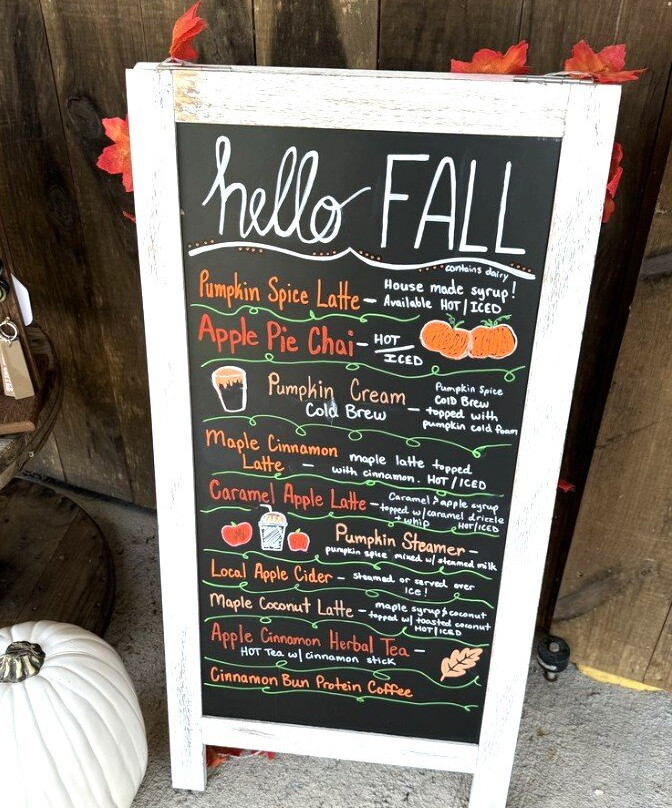 hello FALL
contains dairy
Pumpkin Spice Latte – House made syrup!
Available HOT/ICED
Apple Pie Chai – HOT/ICED
Pumpkin Cream
Cold Brew –
Pumpkin Spice
Cold Brew
topped with
pumpkin cold foam
Maple Cinnamon
Latte –
maple latte topped
with cinnamon. HOT/ICED
Caramel Apple Latte – Caramel & apple syrup
topped w/caramel drizzle
+ whip HOT/ICED
Pumpkin Steamer –
pumpkin spice mixed w/ steamed milk
Local Apple Cider – steamed or served over
ice!
Maple Coconut Latte – maple syrup & coconut
topped w/ toasted coconut
HOT/ICED
Apple Cinnamon Herbal Tea –
HOT Tea w/ cinnamon stick
Cinnamon Bun Protein Coffee